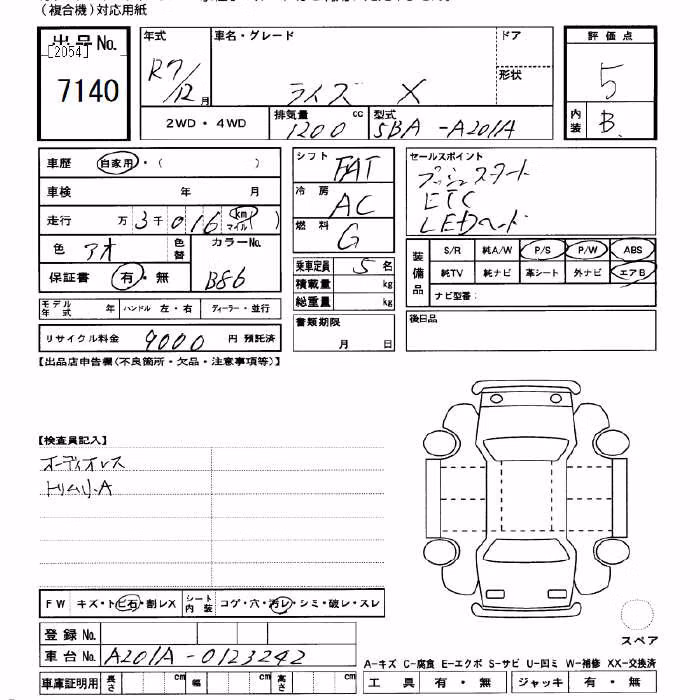 (複合機)対応用紙
出品No.
[2054]
7140
年式
R7/12月
車名・グレード
ライズ X
ドア
形状
2WD・4WD
排気量
1200 cc
型式
5BA-A201A
評価点
5
内装
B.
車歴 自家用・( )
車検 年 月
走行 万 3千 0 1 6 km マイル )
色 アオ 色替 カラーNo. B86
保証書 有・無
モデル年式 年 ハンドル 左・右 ディーラー・並行
リサイクル料金 9000 円 預託済
シフト FAT
冷房 AC
燃料 G
乗車定員 5名
積載量 kg
総重量 kg
書類期限
月 日
セールスポイント
プッシュスタート
ETC
LEDヘッド
装備品
S/R 純A/W P/S P/W ABS
純TV 純ナビ 革シート 外ナビ エアB
ナビ型番:
後日品
【出品店申告欄(不良箇所・欠品・注意事項等)】
【検査員記入】
オーディオレス
トリムリ.A
FW キズ・トビ石・割レX シート内装 コゲ・穴・汚レ・シミ・破レ・スレ
登録No.
車台No. A201A-0123242
車庫証明用 長さ cm 幅 cm 高さ cm
スペア
A-キズ C-腐食 E-エクボ S-サビ U-凹ミ W-補修 XX-交換済
工具 有・無 ジャッキ 有・無